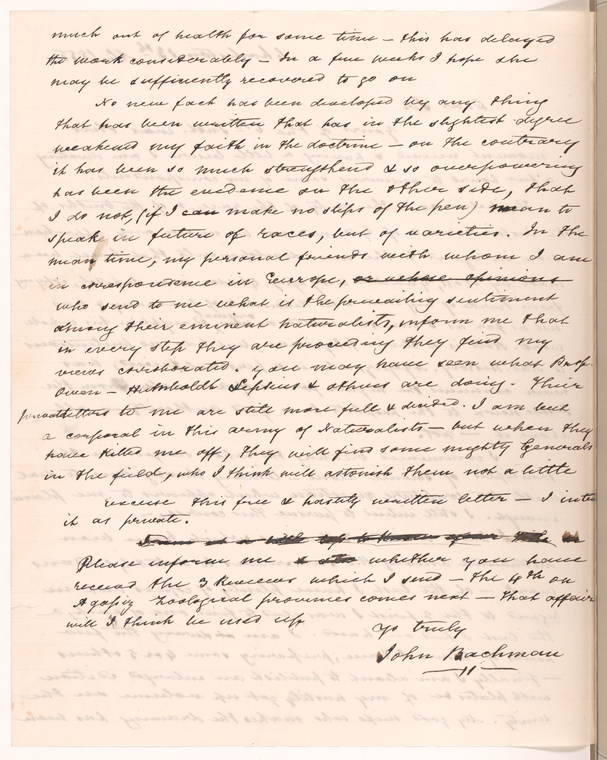 much out of health for some time – this has delayed
the work considerably – In a few weeks I hope she
may be sufficiently recovered to go on
No new fact has been developed by any thing
that has been written that has in the slightest degree
weakened my faith in the doctrine – on the contrary
it has been so much strengthend & so overpowering
has been the evidence on the other side, that
I do not, (if I can make no slips of the pen) mean to
speak in future of races, but of varieties. In the
mean time, my personal friends with whom I am
in correspondence in Europe, or whose opinions
who send to me what is the prevailing sentiment
among their eminent naturalists, inform me that
in every step they are proceeding they find my
views corroborated. You may have seen what Prof.
Owen – Humboldt Lepsius & others are doing. Their
private letters to me are still more full & decided. I am but
a corporal in this army of Naturalists – but when they
have killed me off, they will find some mighty Generals
in the field, who I think will astonish them not a little
excuse this free & hastily written letter – I inte
it as private.
I am at a to know your
Please inform me whether you have
received the 3 Reviews which I send – the 4th on
Agassiz Zoological provinces comes next – that affair
will I think be used up
Ys truly
John Bachman